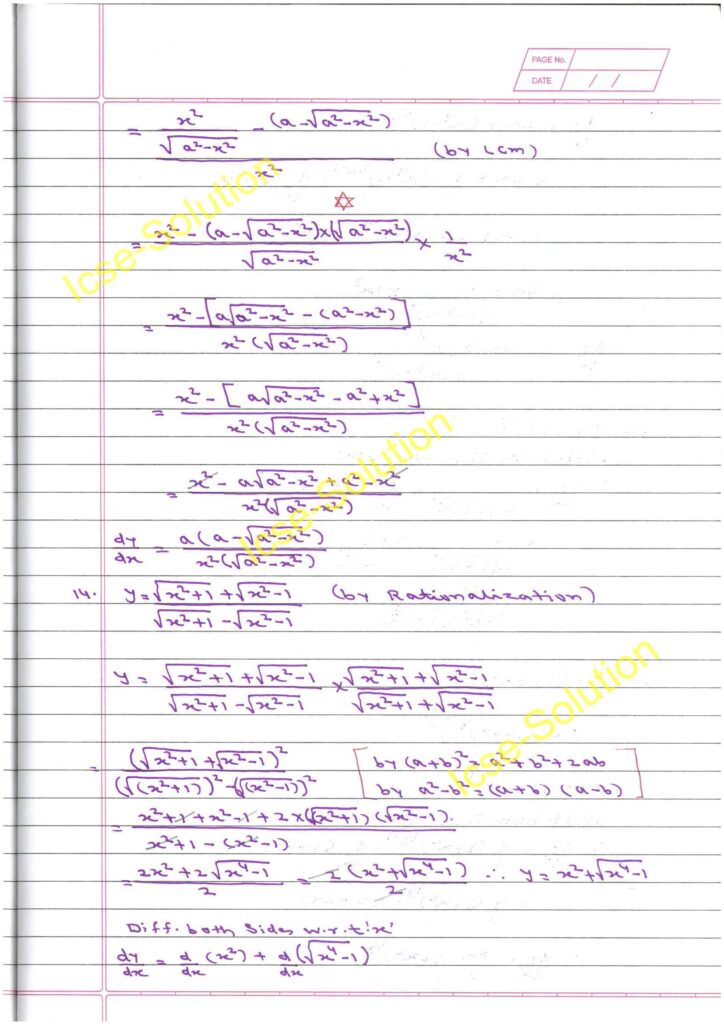 PAGE No.
DATE / /
= (x²/√(a²-x²) - (a-√(a²-x²)))/x² (by LCM)
= (x² - (a-√(a²-x²))×(√(a²-x²)))/√(a²-x²) × 1/x²
Icse-Solution
= (x² - [a√(a²-x²) - (a²-x²)])/(x²(√(a²-x²)))
= (x² - [a√(a²-x²) - a² + x²])/(x²(√(a²-x²)))
= (x² - a√(a²-x²) + a² - x²)/(x²(√(a²-x²)))
Icse-Solution
dy/dx = a(a-√(a²-x²))/(x²(√(a²-x²)))
14. y = (√(x²+1) + √(x²-1))/(√(x²+1) - √(x²-1)) (by Rationalization)
y = (√(x²+1) + √(x²-1))/(√(x²+1) - √(x²-1)) × (√(x²+1) + √(x²-1))/(√(x²+1) + √(x²-1))
Icse-Solution
= (√(x²+1) + √(x²-1))²/((√(x²+1))² - (√(x²-1))²) [by (a+b)² = a² + b² + 2ab
by a²-b² = (a+b) (a-b)]
= (x²+1+x²-1+2×(√(x²+1)) (√(x²-1)))/(x²+1 - (x²-1))
= (2x² + 2√(x⁴-1))/2 = 2(x²+√(x⁴-1))/2 ∴ y = x²+√(x⁴-1)
Diff. both sides w.r.t 'x'
dy/dx = d/dx (x²) + d/dx (√(x⁴-1))